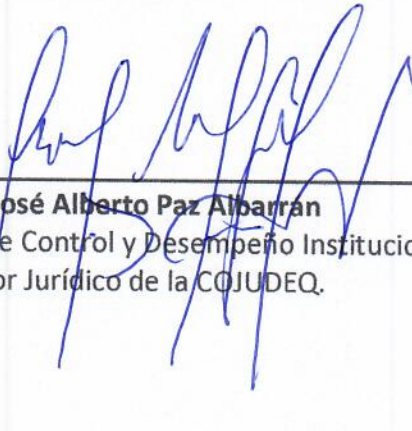 osé Alberto Paz Albarrán
e Control y Desempeño Institucio
or Jurídico de la COJUDEQ.